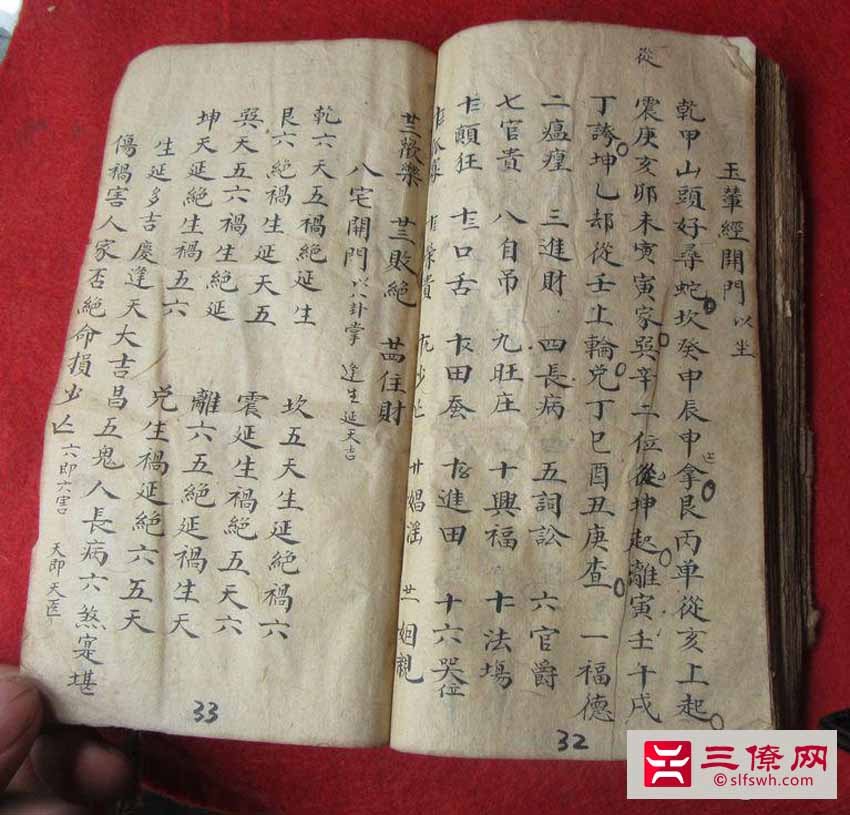 玉輦經開門以坐
乾甲山頭好尋蛇坎癸申辰申拿艮丙单從亥上起
從
震庚亥卯未寅寅家巽辛二位從坤起離寅壬午戌
丁誇坤乙却從壬上輪兑丁巳酉丑庚查一福德
二瘟㾮 三進財 四長病 五詞訟 六官爵
七官貴 八自吊 九旺庄 十興福 十法場
顛狂 口舌 田蚕 進田 十六哭位
少亡 娼淫
歡樂 敗絕 住財 姻親
八宅開門以八卦掌 逢生延天吉
乾六天五禍絕延生 坎五天生延絕禍六
艮六絕禍生延天五 震延生禍絕五天六
巽天五六禍生絕延 離六五絕延禍生天
坤天延絕生禍五六 兑生禍延絕六五天
生延多吉慶逢天大吉昌五鬼人長病六煞寔堪
傷禍害人家否絕命損少亡六即六害 天即天医
33
32
三僚网
slfswh.com